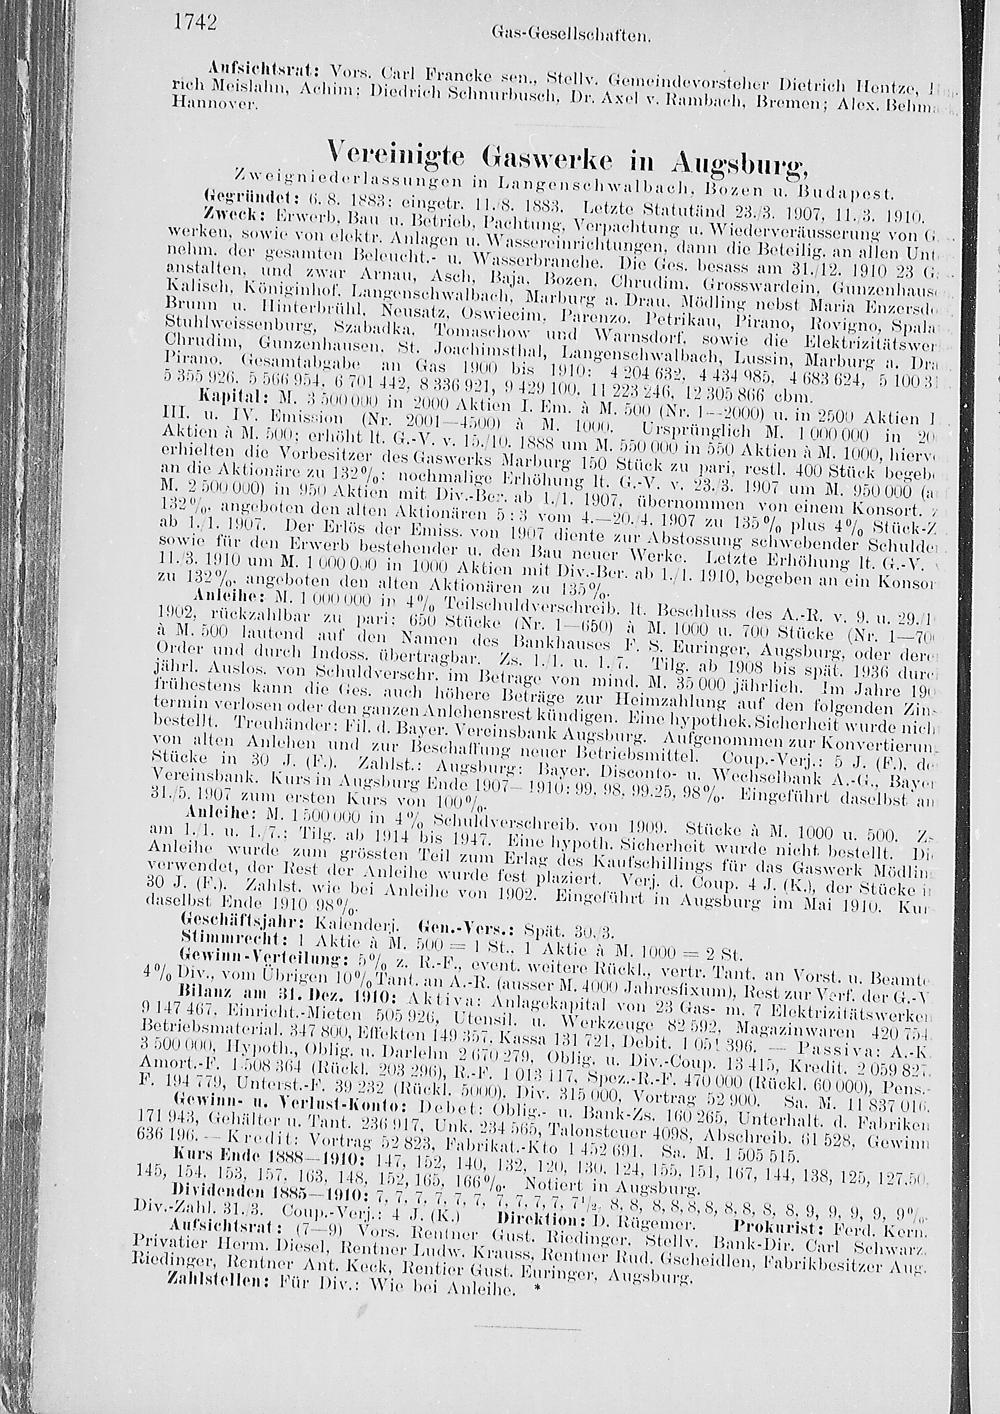 1742
Gas-Gesellschaften.
Aufsichtsrat: Vors. Carl Francke sen., Stellv. Gemeindevorsteher Dietrich Hentze,
rich Meislahn, Achim; Diedrich Schnurbusch, Dr. Axel v. Rambach, Bremen; Alex. Behm
Hannover.
Vereinigte Gaswerke in Augsburg,
Zweigniederlassungen in Langenschwalbach, Bozen u. Budapest.
Gegründet: 6./8. 1883; eingetr. 11./8. 1883. Letzte Statutänd 23./3. 1907, 11./3. 1910.
Zweck: Erwerb, Bau u. Betrieb, Pachtung, Verpachtung u. Wiederveräusserung von G
werken, sowie von elektr. Anlagen u. Wassereinrichtungen, dann die Beteilig. an allen Unt
nehm. der gesamten Beleucht.- u. Wasserbranche. Die Ges. besass am 31./12. 1910 23 G
anstalten, und zwar Arnau, Asch, Baja, Bozen, Chrudim, Grosswardein, Gunzenhause
Kalisch, Königinhof, Langenschwalbach, Marburg a. Drau, Mödling nebst Maria Enzersdo
Brunn u. Hinterbrühl, Neusatz, Oswiecim, Parenzo, Petrikau, Pirano, Rovigno, Spala
Stuhlweissenburg, Szabadka, Tomaschow und Warnsdorf, sowie die Elektrizitätswer
Chrudim, Gunzenhausen, St. Joachimsthal, Langenschwalbach, Lussin, Marburg a. Dra
Pirano. Gesamtabgabe an Gas 1900 bis 1910: 4 204 632, 4 434 985, 4 683 624, 5 100 3
5 355 926, 5 566 954, 6 701 442, 8 336 921, 9 429 100, 11 223 246, 12 305 866 cbm.
Kapital: M. 3 500 000 in 2000 Aktien I. Em. à M. 500 (Nr. 1—2000) u. in 2500 Aktien I
III. u. IV. Emission (Nr. 2001—4500) à M. 1000. Ursprünglich M. 1 000 000 in 20
Aktien à M. 500; erhöht lt. G.-V. v. 15./10. 1888 um M. 550 000 in 550 Aktien à M. 1000, hierv
erhielten die Vorbesitzer des Gaswerks Marburg 150 Stück zu pari, restl. 400 Stück begeb
an die Aktionäre zu 132%; nochmalige Erhöhung lt. G.-V. v. 23./3. 1907 um M. 950 000 (a
M. 2 500 000) in 950 Aktien mit Div.-Ber. ab 1./1. 1907, übernommen von einem Konsort. z
132%, angeboten den alten Aktionären 5 : 3 vom 4.—20./4. 1907 zu 135% plus 4% Stück-Z
ab 1./1. 1907. Der Erlös der Emiss. von 1907 diente zur Abstossung schwebender Schulde
sowie für den Erwerb bestehender u. den Bau neuer Werke. Letzte Erhöhung lt. G.-V. v
11./3. 1910 um M. 1 000 000 in 1000 Aktien mit Div.-Ber. ab 1./1. 1910, begeben an ein Konsor
zu 132%, angeboten den alten Aktionären zu 135%.
Anleihe: M. 1 000 000 in 4% Teilschuldverschreib. lt. Beschluss des A.-R. v. 9. u. 29./1
1902, rückzahlbar zu pari; 650 Stücke (Nr. 1—650) à M. 1000 u. 700 Stücke (Nr. 1—700
à M. 500 lautend auf den Namen des Bankhauses F. S. Euringer, Augsburg, oder dere
Order und durch Indoss. übertragbar. Zs. 1./1. u. 1./7. Tilg. ab 1908 bis spät. 1936 durc
jährl. Auslos. von Schuldverschr. im Betrage von mind. M. 35 000 jährlich. Im Jahre 190
frühestens kann die Ges. auch höhere Beträge zur Heimzahlung auf den folgenden Zin
termin verlosen oder den ganzen Anlehensrest kündigen. Eine hypothek. Sicherheit wurde nich
bestellt. Treuhänder: Fil. d. Bayer. Vereinsbank Augsburg. Aufgenommen zur Konvertierun
von alten Anlehen und zur Beschaffung neuer Betriebsmittel. Coup.-Verj.: 5 J. (F.), de
Stücke in 30 J. (F.). Zahlst.: Augsburg: Bayer. Disconto- u. Wechselbank A.-G., Bayer
Vereinsbank. Kurs in Augsburg Ende 1907—1910: 99, 98, 99.25, 98%. Eingeführt daselbst am
31./5. 1907 zum ersten Kurs von 100%.
Anleihe: M. 1 500 000 in 4% Schuldverschreib. von 1909. Stücke à M. 1000 u. 500. Zs
am 1./1. u. 1./7.; Tilg. ab 1914 bis 1947. Eine hypoth. Sicherheit wurde nicht bestellt. Di
Anleihe wurde zum grössten Teil zum Erlag des Kaufschillings für das Gaswerk Mödlin
verwendet, der Rest der Anleihe wurde fest plaziert. Verj. d. Coup. 4 J. (K.), der Stücke i
30 J. (F.). Zahlst. wie bei Anleihe von 1902. Eingeführt in Augsburg im Mai 1910. Kur
daselbst Ende 1910 98%.
Geschäftsjahr: Kalenderj. Gen.-Vers.: Spät. 30./3.
Stimmrecht: 1 Aktie à M. 500 = 1 St., 1 Aktie à M. 1000 = 2 St.
Gewinn-Verteilung: 5% z. R.-F., event. weitere Rückl., vertr. Tant. an Vorst. u. Beamte
4% Div., vom Übrigen 10% Tant. an A.-R. (ausser M. 4000 Jahresfixum), Rest zur Verf. der G.-V
Bilanz am 31. Dez. 1910: Aktiva: Anlagekapital von 23 Gas- m. 7 Elektrizitätswerken
9 147 467, Einricht.-Mieten 505 926, Utensil. u. Werkzeuge 82 592, Magazinwaren 420 754,
Betriebsmaterial. 347 800, Effekten 149 357, Kassa 131 721, Debit. 1 051 396. — Passiva: A.-K.
3 500 000, Hypoth., Oblig. u. Darlehn 2 670 279, Oblig. u. Div.-Coup. 13 415, Kredit. 2 059 827,
Amort.-F. 1 508 364 (Rückl. 203 296), R.-F. 1 013 117, Spez.-R.-F. 470 000 (Rückl. 60 000), Pens.-
F. 194 779, Unterst.-F. 39 232 (Rückl. 5000), Div. 315 000, Vortrag 52 900. Sa. M. 11 837 016.
Gewinn- u. Verlust-Konto: Debet: Oblig.- u. Bank-Zs. 160 265, Unterhalt. d. Fabriken
171 943, Gehälter u. Tant. 236 917, Unk. 234 565, Talonsteuer 4098, Abschreib. 61 528, Gewinn
636 196. — Kredit: Vortrag 52 823, Fabrikat.-Kto 1 452 691. Sa. M. 1 505 515.
Kurs Ende 1888—1910: 147, 152, 140, 132, 120, 130, 124, 155, 151, 167, 144, 138, 125, 127.50,
145, 154, 153, 157, 163, 148, 152, 165, 166%. Notiert in Augsburg.
Dividenden 1885—1910: 7, 7, 7, 7, 7, 7, 7, 7, 7, 7, 7, 7½, 8, 8, 8, 8, 8, 8, 8, 8, 8, 9, 9, 9, 9, 9%.
Div.-Zahl. 31./3. Coup.-Verj.: 4 J. (K.) Direktion: D. Rügemer. Prokurist: Ferd. Kern.
Aufsichtsrat: (7—9) Vors. Rentner Gust. Riedinger, Stellv. Bank-Dir. Carl Schwarz,
Privatier Herm. Diesel, Rentner Ludw. Krauss, Rentner Rud. Gscheidlen, Fabrikbesitzer Aug.
Riedinger, Rentner Ant. Keck, Rentier Gust. Euringer, Augsburg.
Zahlstellen: Für Div.: Wie bei Anleihe. *